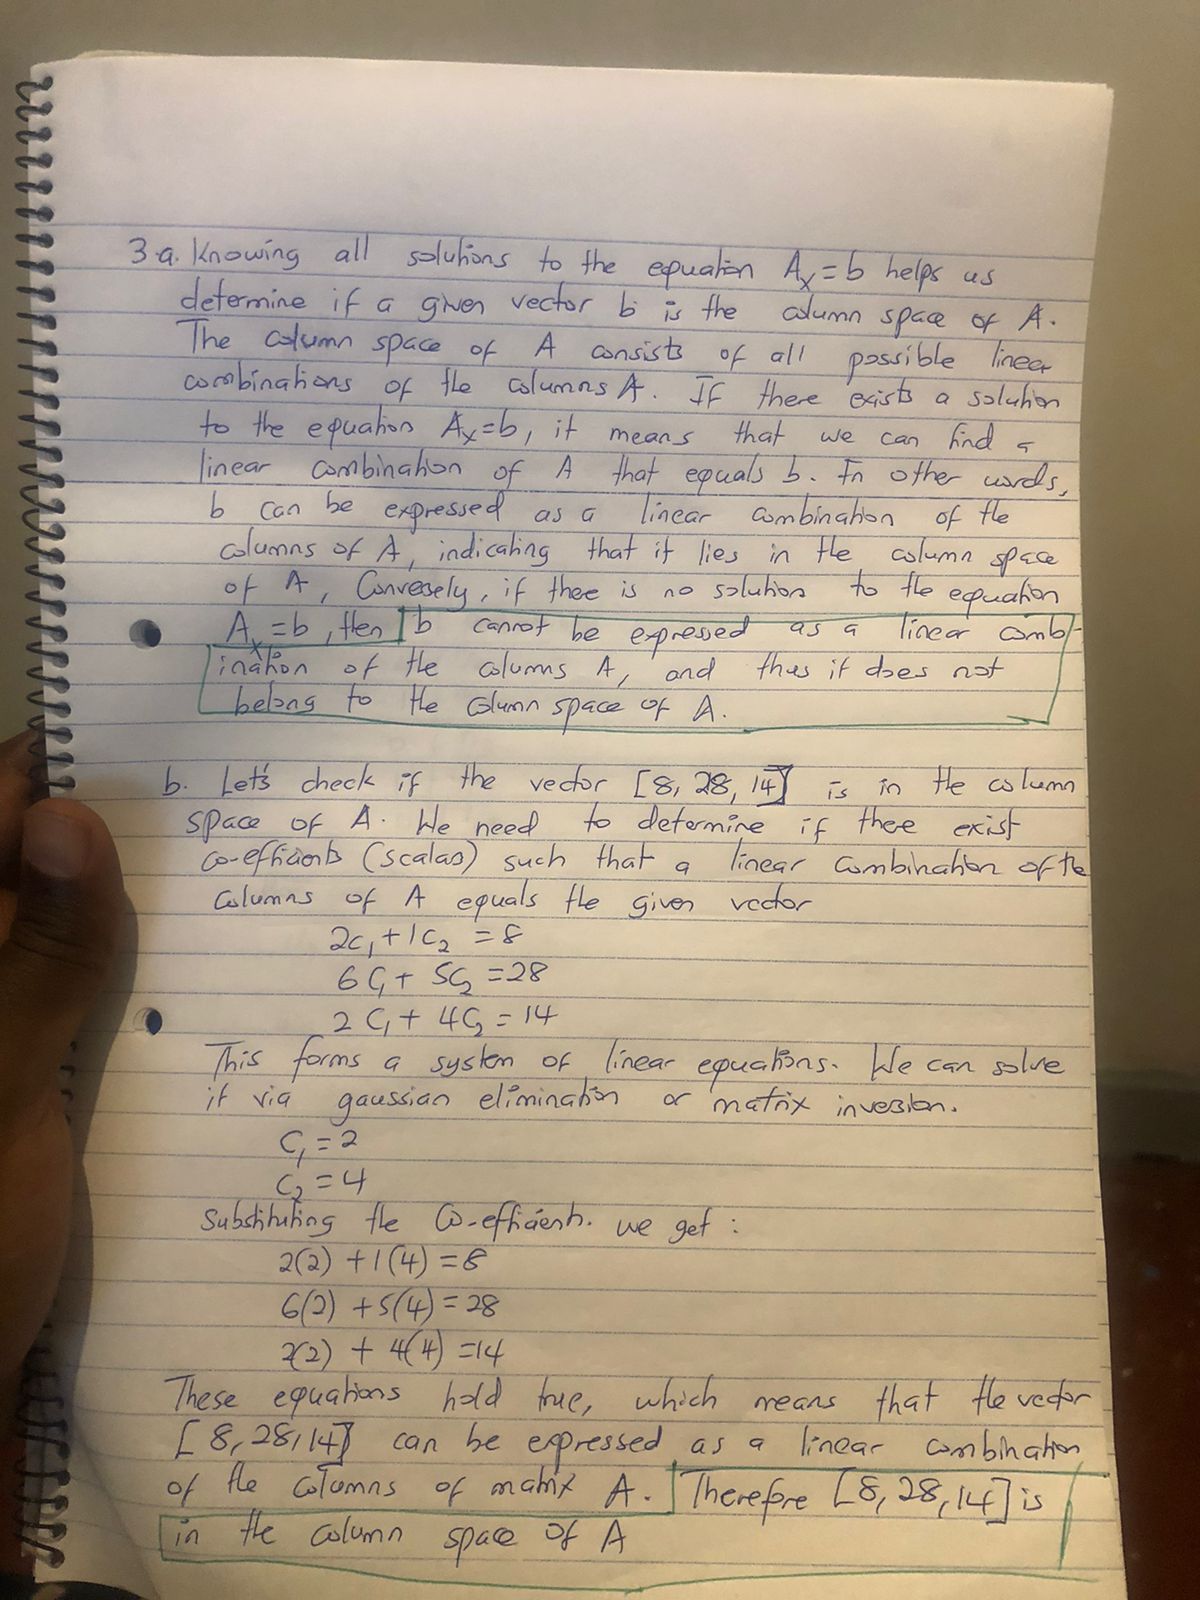 3.a. Knowing all solutions to the equation Ax=b helps us
determine if a given vector b is the column space of A.
The column space of A consists of all possible linear
combinations of the columns A. If there exists a solution
to the equation Ax=b, it means that we can find a
linear combination of A that equals b. In other words,
b can be expressed as a linear combination of the
columns of A, indicating that it lies in the column space
of A, Conversely, if there is no solution to the equation
Ax=b, then b cannot be expressed as a linear comb-
ination of the columns A, and thus it does not
belong to the column space of A.
b. Let's check if the vector [8, 28, 14] is in the column
space of A. We need to determine if there exist
co-efficients (scalas) such that a linear combination of the
columns of A equals the given vector
2c₁+1c₂ =8
6c₁+ 5c₂ =28
2c₁+ 4c₂ = 14
This forms a system of linear equations. We can solve
it via gaussian elimination or matrix inversion.
c₁ =2
c₂ =4
Substituting the co-efficients. we get :
2(2) +1(4) =8
6(2) +5(4)=28
2(2) + 4(4) =14
These equations hold true, which means that the vector
[8,28,14] can be expressed as a linear combination
of the columns of matrix A. Therefore [8,28,14] is
in the column space of A